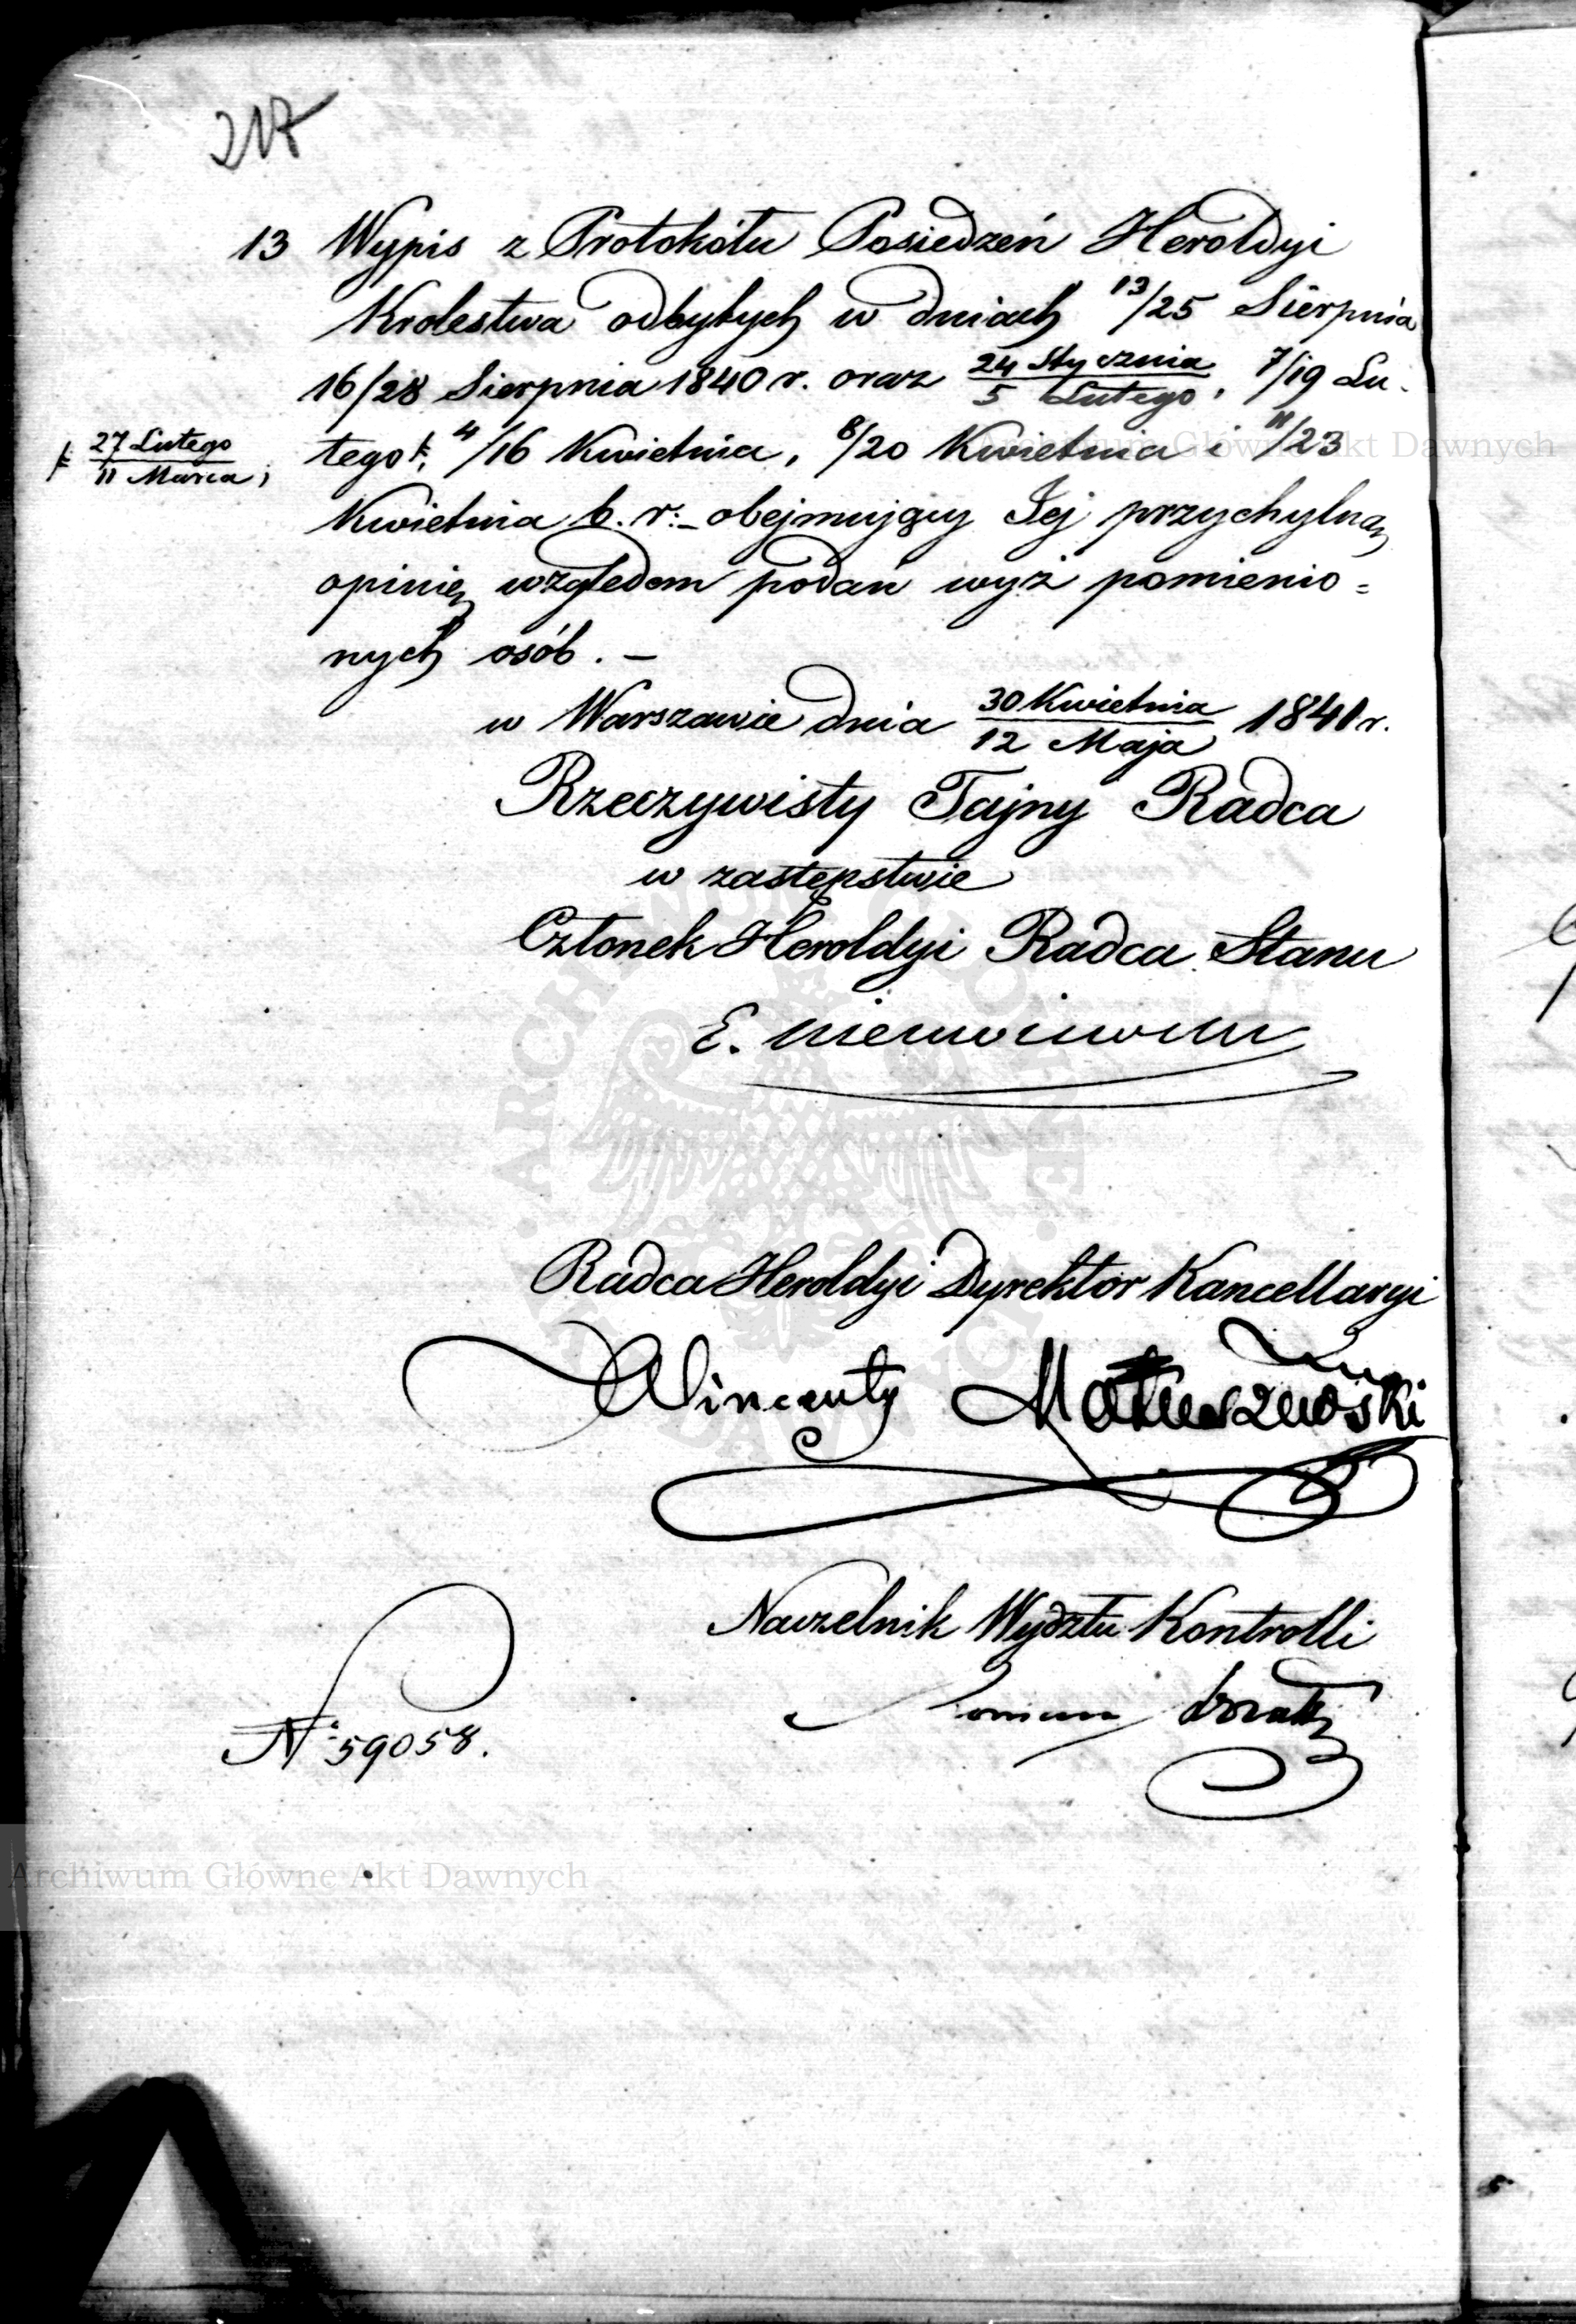 217
13 Wypis z Protokółu Posiedzeń Heroldyi
Krolestwa odbytych w dniach 13/25 Sierpnia
16/28 Sierpnia 1840 r. oraz 24 Stycznia/5 Lutego, 7/19 Lu-
tego ⱡ, 4/16 Kwietnia, 8/20 Kwietnia i 11/23
ⱡ 27 Lutego/11 Marca;
Kwietnia b. r:- obejmujący Jej przychylną
opinię względem podań wyż pomienio=
nych osób. —
w Warszawie dnia 30 Kwietnia/12 Maja 1841 r.
Rzeczywisty Tajny Radca
w zastępstwie
Członek Heroldyi Radca Stanu
E.
Radca Heroldyi Dyrektor Kancellaryi
Wincenty Matuszewski
Naczelnik Wydztu Kontrolli
№ 59058.
Archiwum Główne Akt Dawnych
Archiwum Główne Akt Dawnych
ARCHIWUM GŁÓWNE AKT DAWNYCH